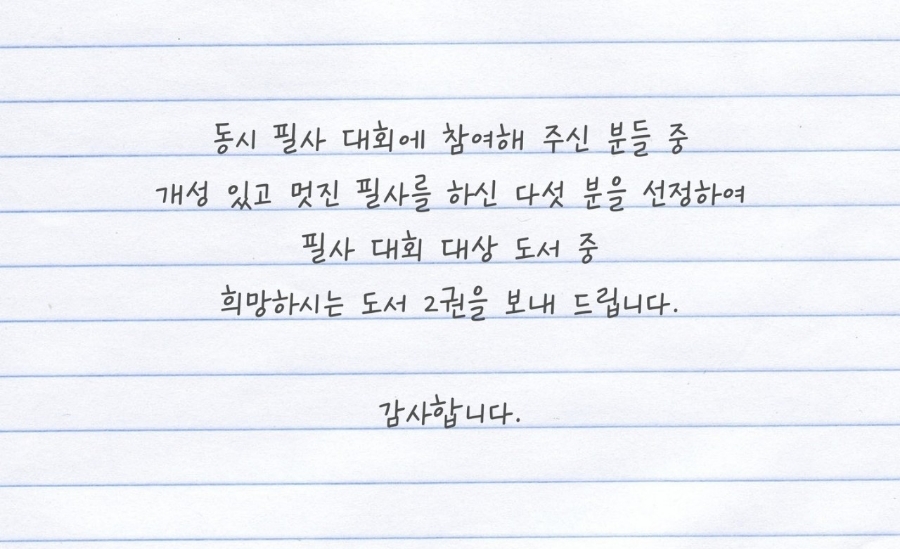 동시 필사 대회에 참여해 주신 분들 중
개성 있고 멋진 필사를 하신 다섯 분을 선정하여
필사 대회 대상 도서 중
희망하시는 도서 2권을 보내 드립니다.
감사합니다.